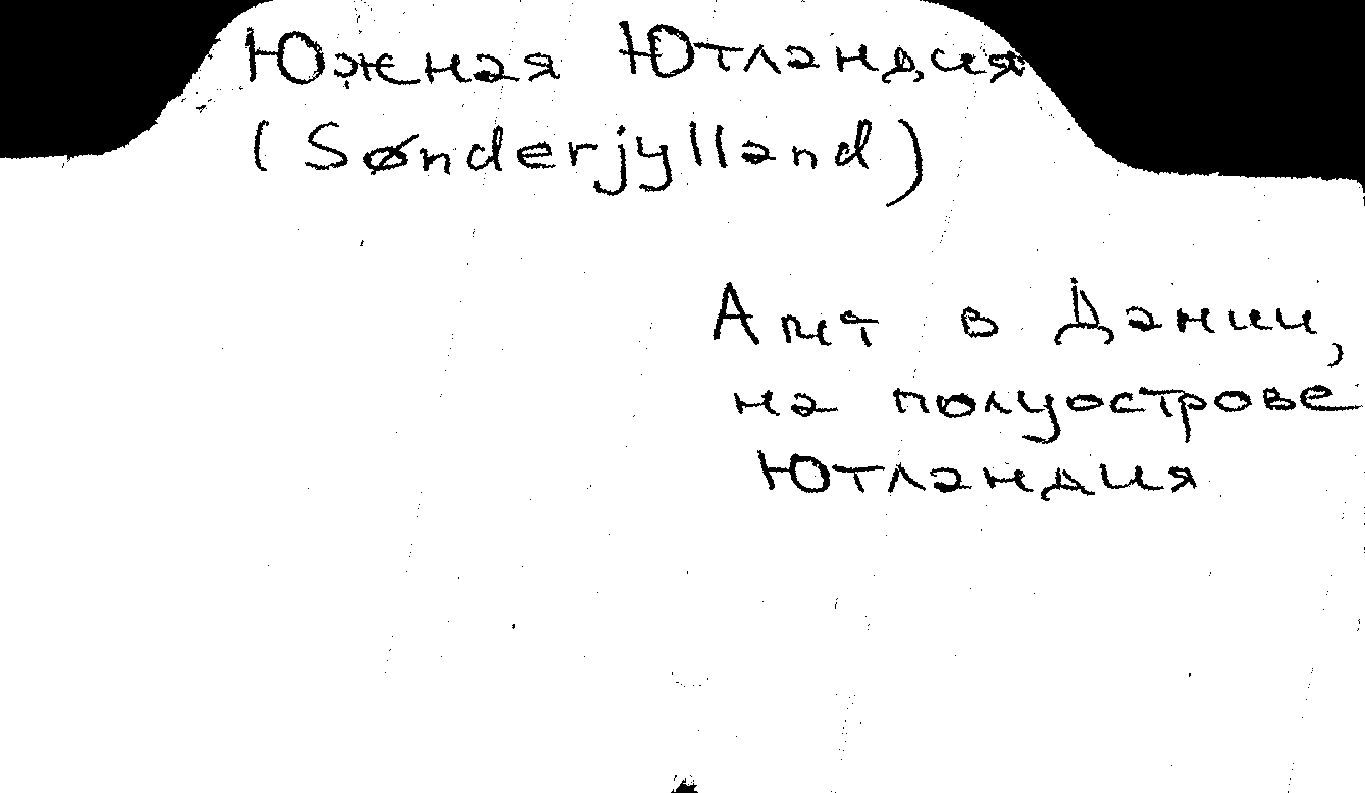 Южная Ютландия
(Sønderjylland)
Амт в Дании,
на полуострове
Ютландия